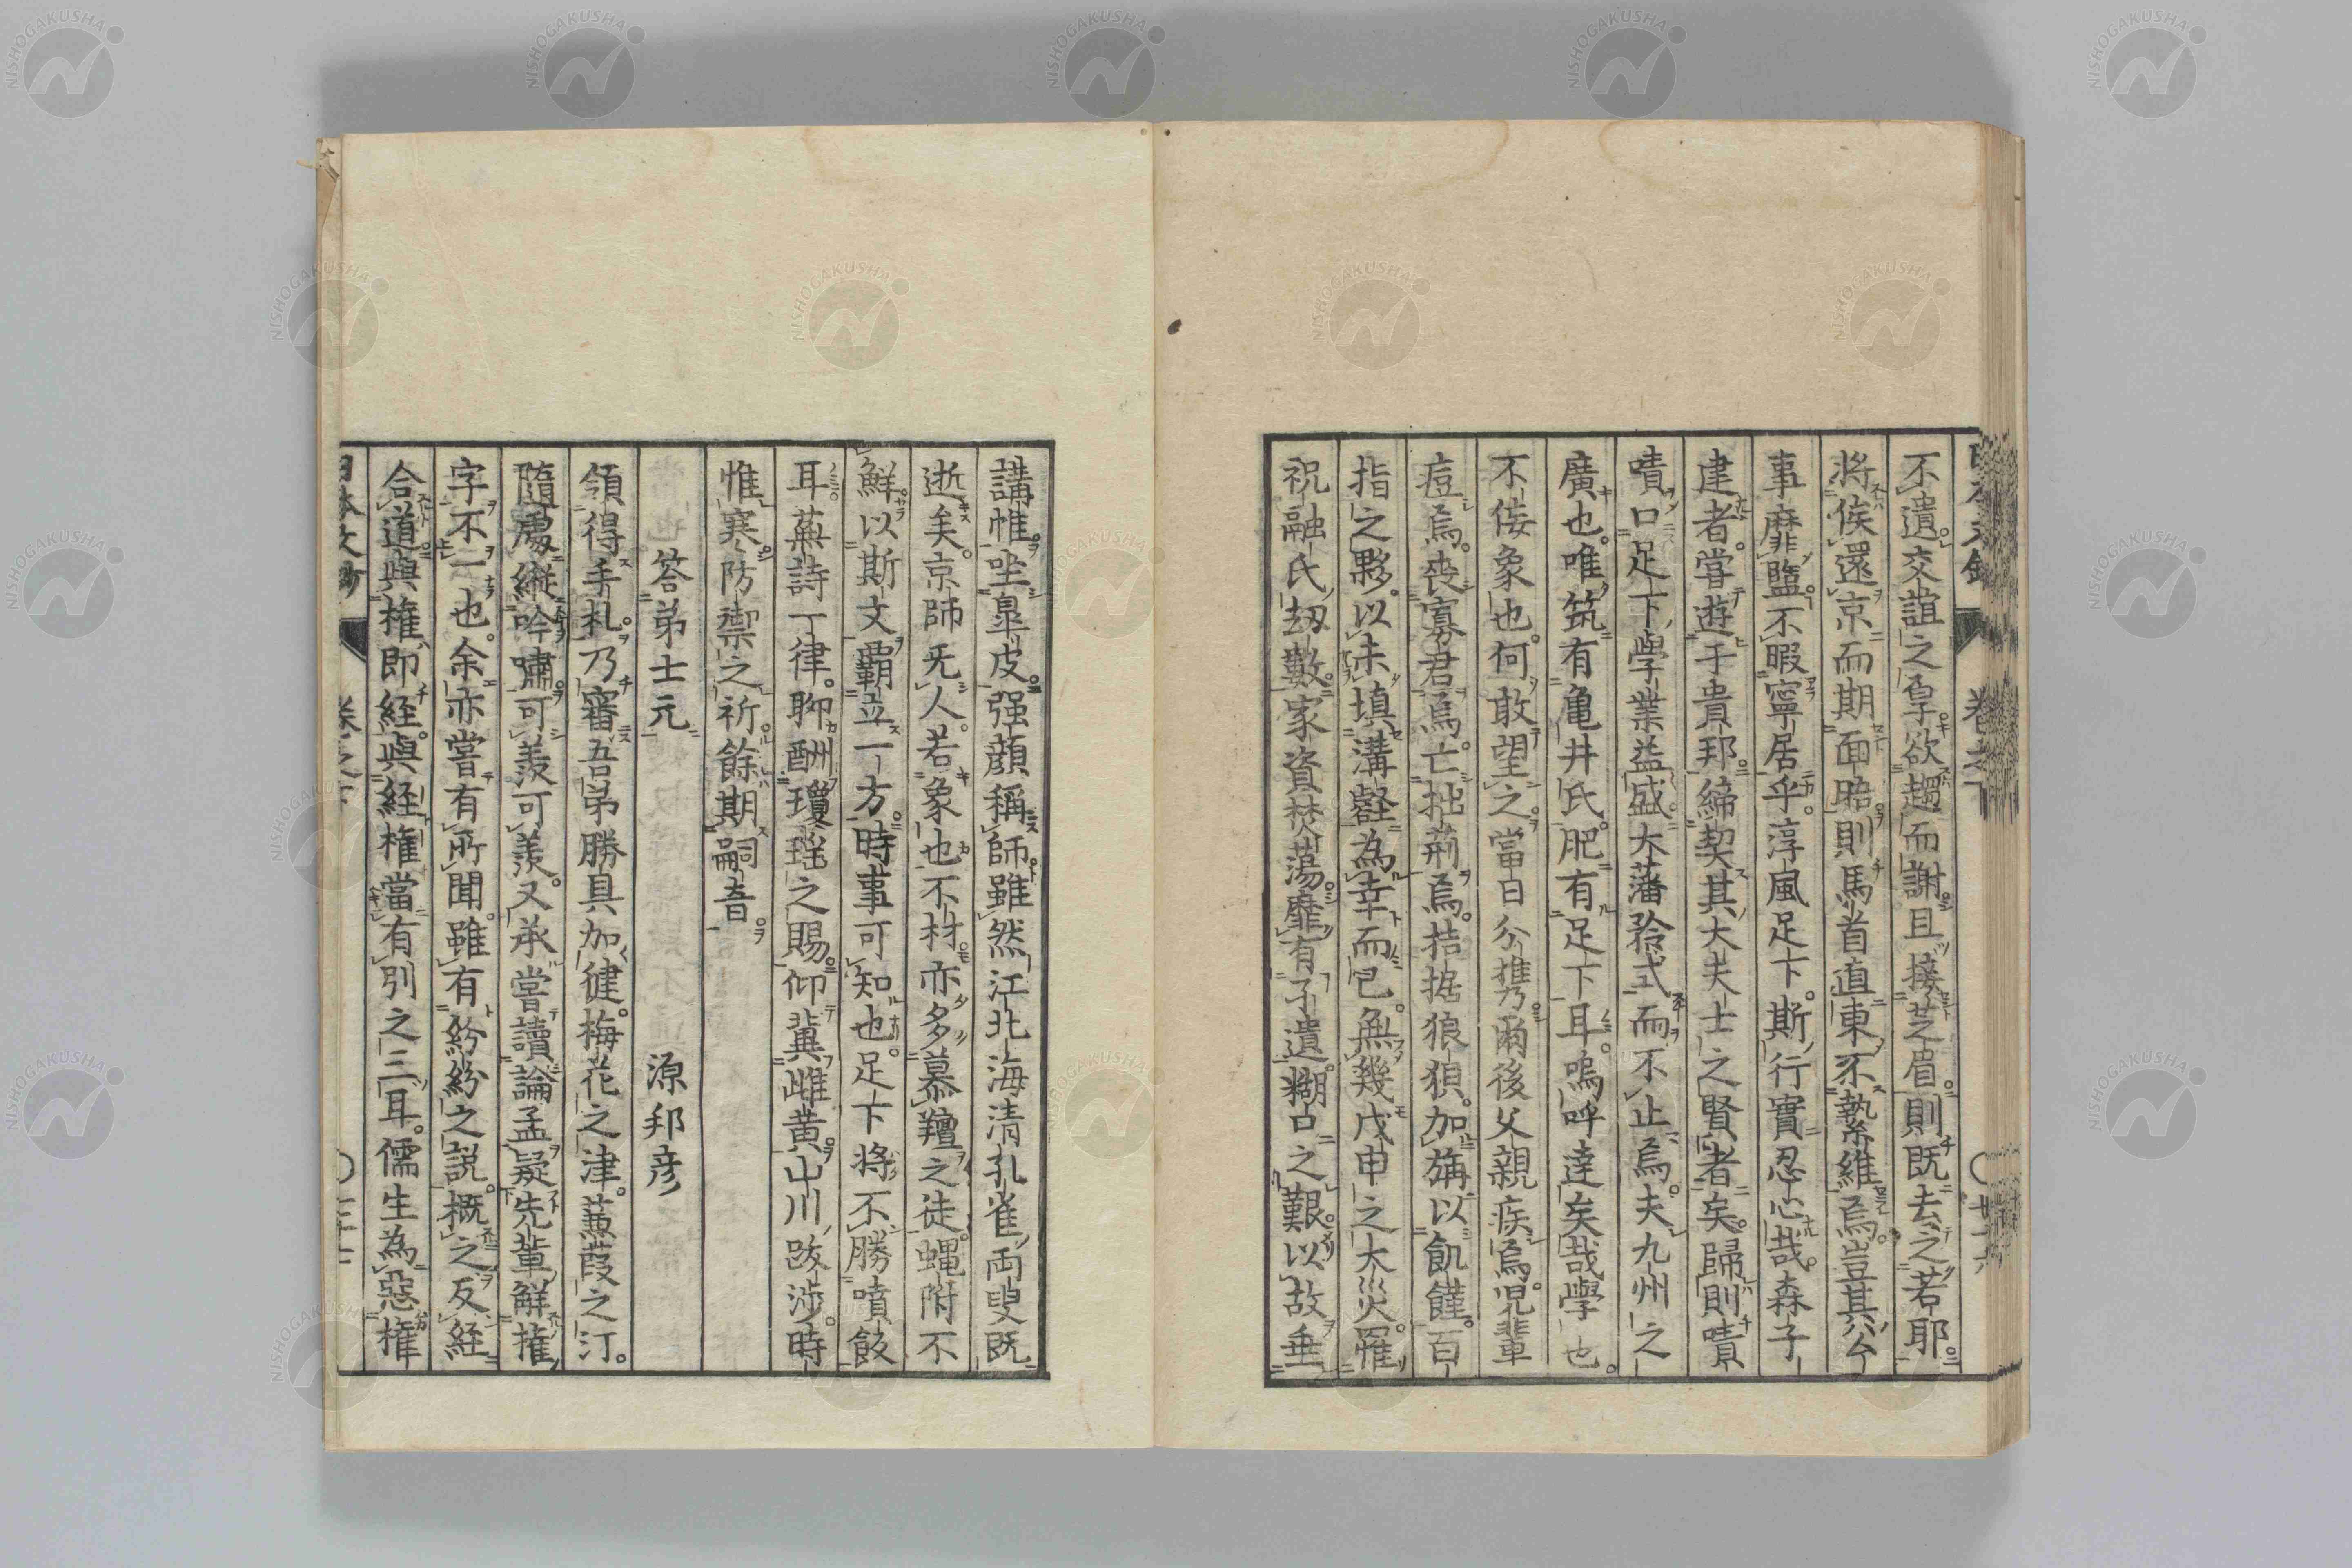 不遺交誼之厚欲趨而謝且接芝眉則既去之若耶
將俟還京而期面晤則馬首直東不縶維焉豈其公
事靡盬不暇寧居乎淳風足下斯行實忍心哉森子
建者嘗遊于貴邦締契其大夫士之賢者矣歸則嘖
嘖口足下學業益盛大藩矜式而不止焉夫九州之
廣也唯筑有亀井氏肥有足下耳嗚呼達矣哉學也
不佞象也何敢望之當日分携爾後父親疾焉児輩
痘焉喪寡君焉亡拙荊焉拮据狼狽加旃以飢饉百
指之夥以未填溝壑為幸而已無幾戊申之大災罹
祝融氏劫數家資焚蕩靡有孑遺糊口之艱以故垂
講帷坐皐皮强顔稱師雖然江北海清孔雀両叟既
逝矣京師旡人若象也不材亦多慕羶之徒蝿附不
鮮以斯文覇立一方時事可知也足下將不勝噴飯
耳蕪詩一律聊酬瓊瑶之賜仰冀雌黄山川跋渉時
惟寒防禦之祈餘期嗣音
答弟士元 源邦彦
領得手札乃審吾弟勝具加健梅花之津蒹葭之汀
隨處縦吟嘯可羨可羨又承嘗讀論孟疑先輩解権
字不一也余亦嘗有所聞雖有紛紛之説概之反経
合道與権即経與経権當有別之三耳儒生為惡権
卷之下